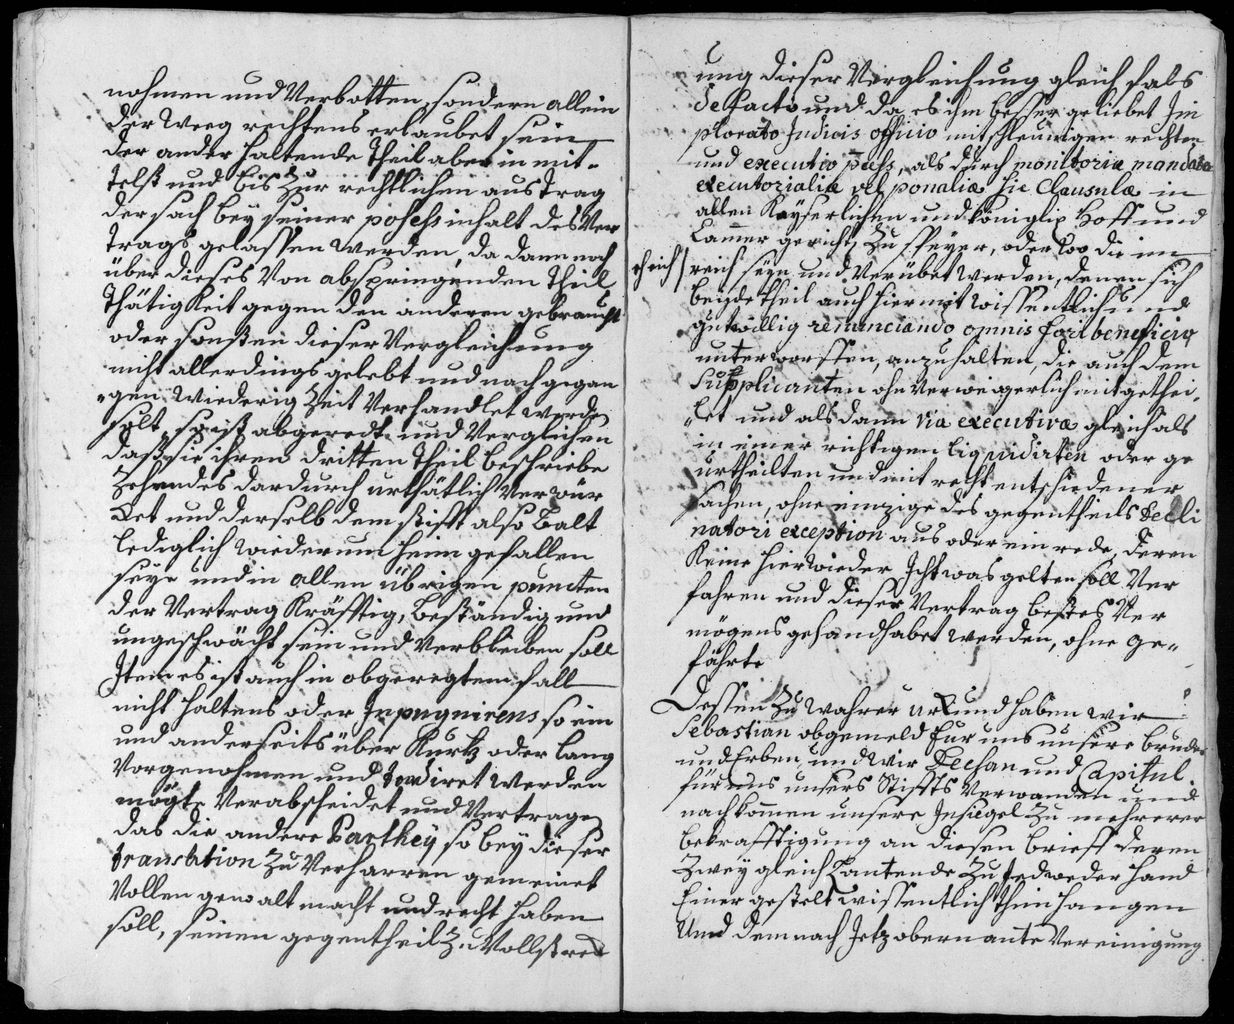 nohmen und Verbotten, sondern allein
der Weeg rechtens erlaubet sein
der ander haltende Theil aber in mit-
telst und biß zur rechtlichen austrag
der sach bey seiner possess inhalt des Ver
trags gelassen werden, da dann noch
über dieses Von abspringenden Theil
Thätigkeit gegen den anderen gebraucht
oder sonsten dieser Vergleichung
nicht allerdings gelebt und nach gegan
gen wiederig Zeit Verhandlet werden
solt, so ist abgeredt und Verglichen
daß sie ihren dritten Theil beschriebe
Zehendes dardurch urthätlich Verwür
ket und derselb dem stifft also balt
lediglich wiederum heim gefallen
seye und in allen übrigen puncten
der Vertrag Kräfftig, beständig und
ungeschwächt sein und Verbleiben soll
Item es ist auch in obgeregtem fall
nicht haltens oder Inpugnirens so ein
und anderseits über Kurtz oder lang
Vorgenohmen und werden
mögte Verabscheidet und Vertragen
das die andere Parthey so bey dieser
translation zu Verharren gemeinet
Vollen gewalt macht und recht haben
soll, seinen gegentheil zu Vollstrek
ung dieser Vergleichung gleich fals
de facto und da es ihm besser geliebet Im
plorato Judicis officio mit schleunigen rechten
und executio als durch monitoria mandata
executorialia vel ponalia Clausula in
allen Kayserlichen und königlich Hoff und
Cammer gericht zu Speyer, oder wo die im
reich seyn und Verübet werden, denen sich
beyde theil auch hiermit wissentlich und
gutwillig renunciando omnis fori beneficio
unterworffen, anzuhalten, die auch dem
Supplicanten ohn Verweigerlich mitgethei-
let und als dann via executiva gleich als
in einer richtigen liquidirten oder ge
urtheilten und mit recht entschiedener
sachen, ohne einzige des gegentheils decli
natori exception aus oder ein rede, deren
Keine hierwieder Icht was gelten soll Ver
fahren und dieser Vertrag bestes Ver
mögens gehandhabet werden, ohne ge-
fährte
Dessen zu wahrer urkund haben wir
Sebastian obgemeld für uns unsere bruder
und Erben, und wir Dechan und Capitul
für uns unsers Stiffts Verwanden und
nachkommen unsere Insiegel zu mehrerer
bekrafftigung an diesen brieff deren
Zwey gleich lautende zu jedweder hand
Einer gestelt wissentlich thun hangen
Und demnach Jetz obernante Vereinigung